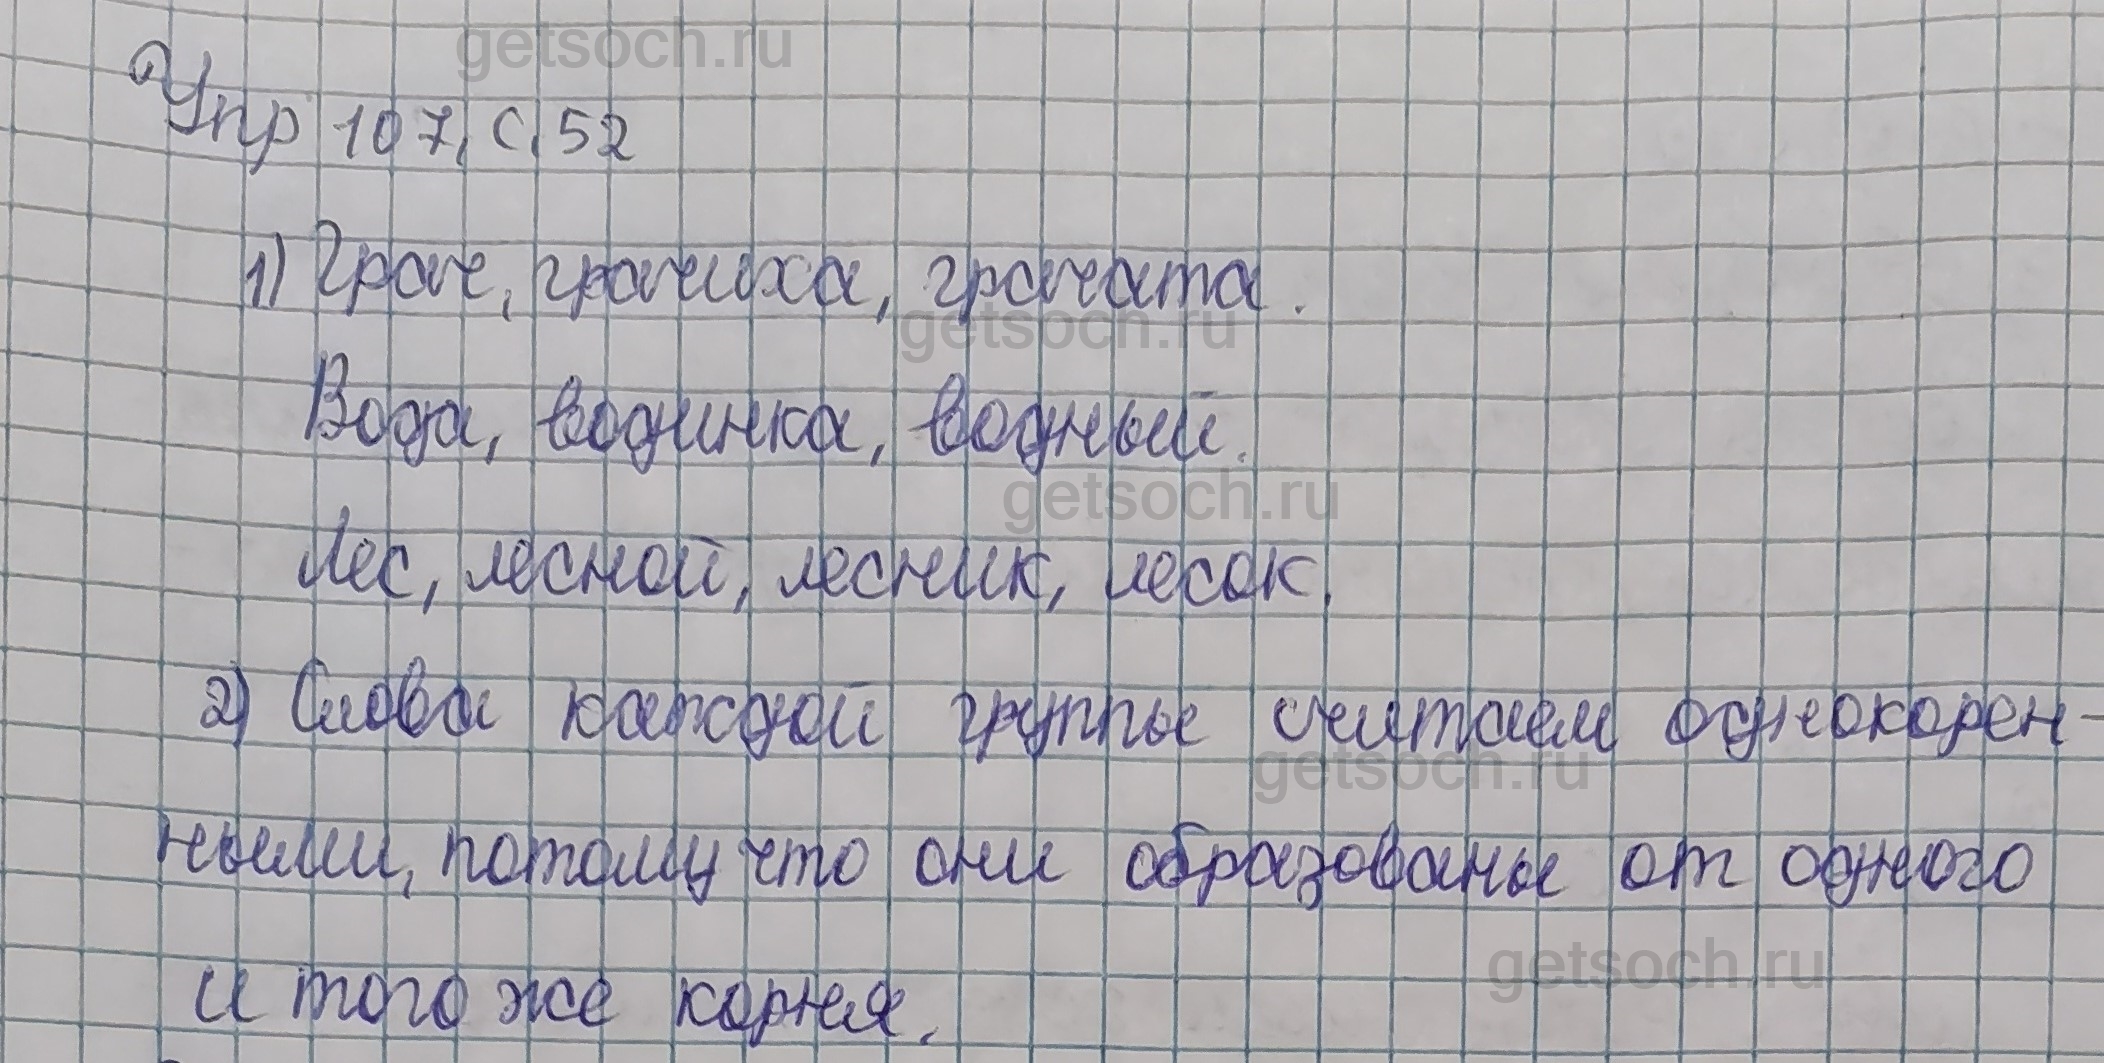 getsoch.ru
Упр 107, с. 52
1) Грач, грачиха, грачата.
getsoch.ru
Вода, водичка, водный.
getsoch.ru
Лес, лесной, лесник, лесок.
2) Слова каждой группы считаем однокорен-
getsoch.ru
ными, потому что они образованы от одного
getsoch.ru
и того же корня.